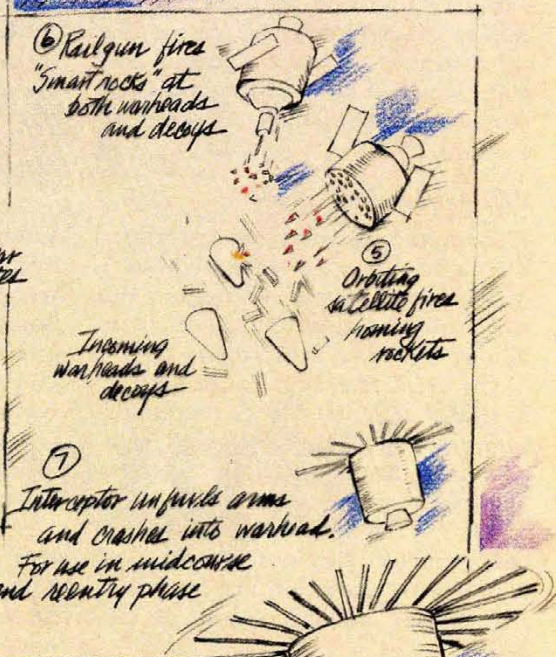 6 Railgun fires
"Smart rocks" at
both warheads
and decoys
5
Orbiting
satellite fires
homing
rockets
Incoming
warheads and
decoys
7
Interceptor unfurls arms
and crashes into warhead.
For use in midcourse
and reentry phase